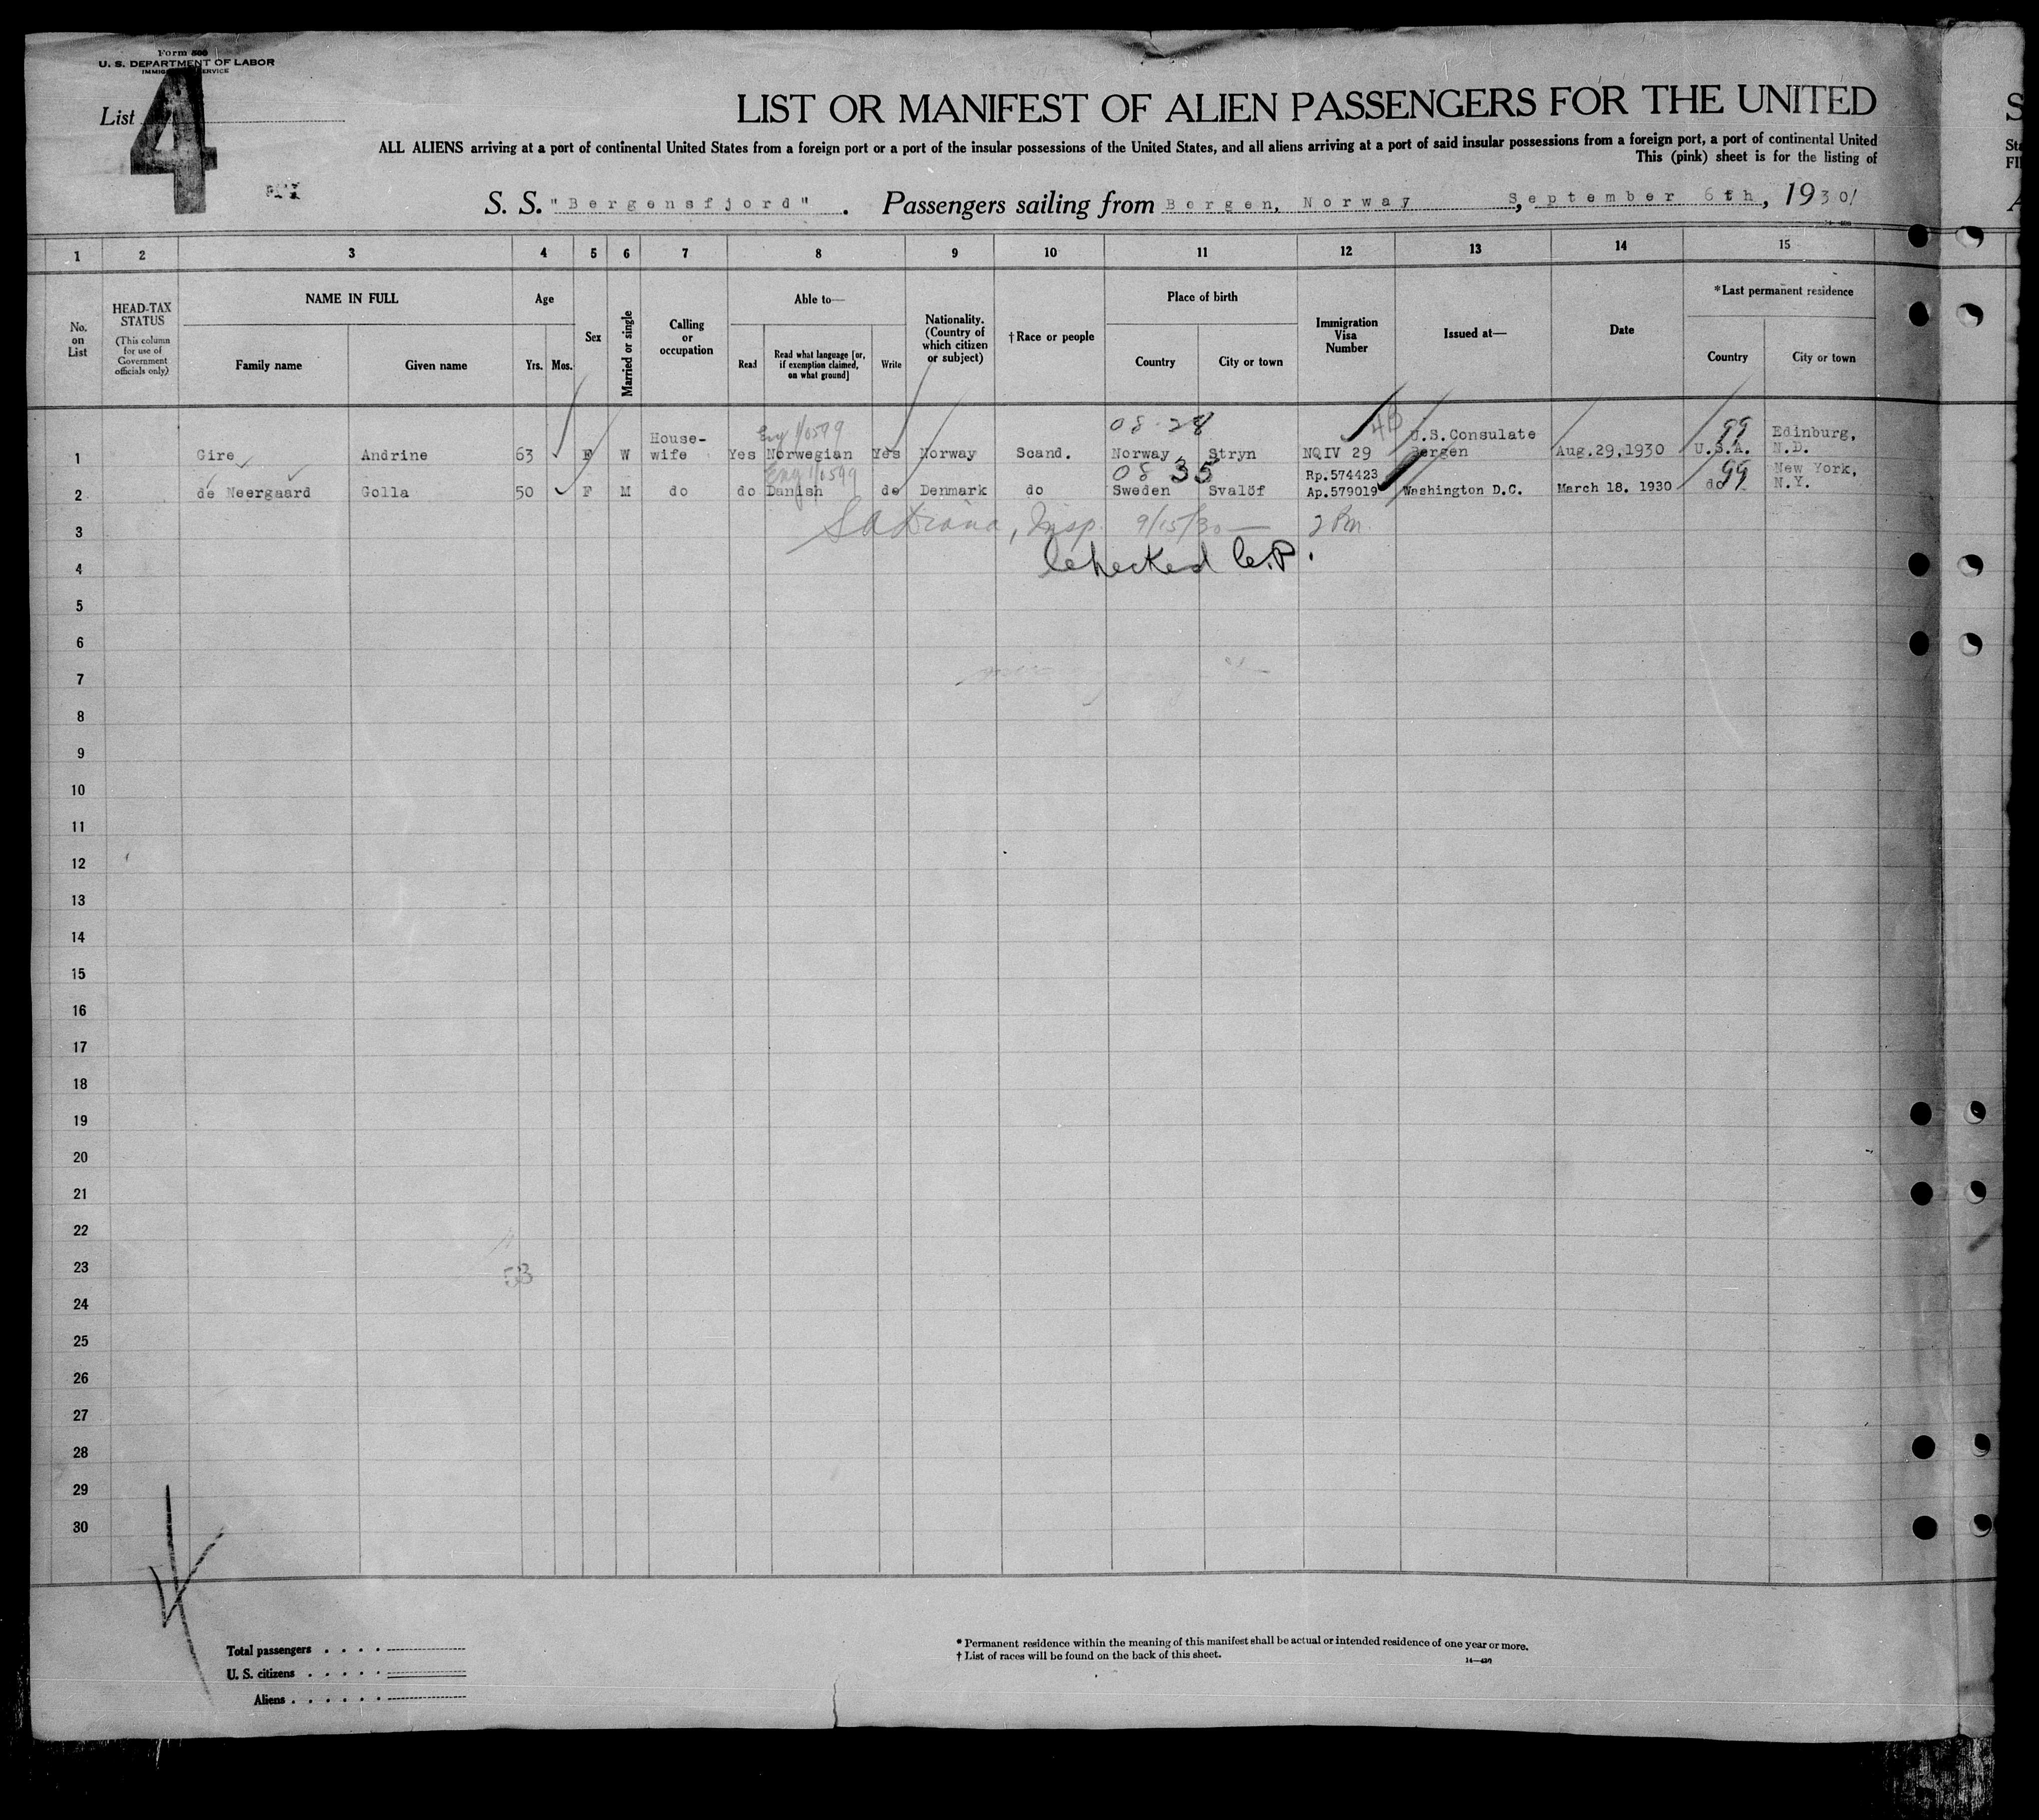 Form 500
U. S. DEPARTMENT OF LABOR
List
4
LIST OR MANIFEST OF ALIEN PASSENGERS FOR THE UNITED
ALL ALIENS arriving at a port of continental United States from a foreign port or a port of the insular possessions of the United States, and all aliens arriving at a port of said insular possessions from a foreign port, a port of continental United
This (pink) sheet is for the listing of
S. S. "Bergensfjord". Passengers sailing from Bergen, Norway, September 6th, 1930
1 2 3 4 5 6 7 8 9 10 11 12 13 14 15
No. on List
HEAD-TAX STATUS
(This column for use of Government officials only)
NAME IN FULL
Family name
Given name
Age
Yrs. Mos.
Sex
Married or single
Calling or occupation
Able to—
Read
Read what language [or, if exemption claimed, on what ground]
Write
Nationality. (Country of which citizen or subject)
†Race or people
Place of birth
Country
City or town
Immigration Visa Number
Issued at—
Date
*Last permanent residence
Country
City or town
08 28
1 Gire Andrine 63 F W House-wife Yes Norwegian Yes Norway Scand. Norway Stryn NQIV 29 U.S.Consulate Bergen Aug.29,1930 U.S.A. 99 Edinburg, N.D.
08 35
2 de Neergaard Golla 50 F M do do Danish do Denmark do Sweden Svalöf Rp.574423 Ap.579019 Washington D.C. March 18. 1930 do 99 New York, N.Y.
3 Insp. 9/15/30
4 Checked C.P.
5
6
7
8
9
10
11
12
13
14
15
16
17
18
19
20
21
22
23
53
24
25
26
27
28
29
30
4
Total passengers
U. S. citizens
Aliens
* Permanent residence within the meaning of this manifest shall be actual or intended residence of one year or more.
† List of races will be found on the back of this sheet.